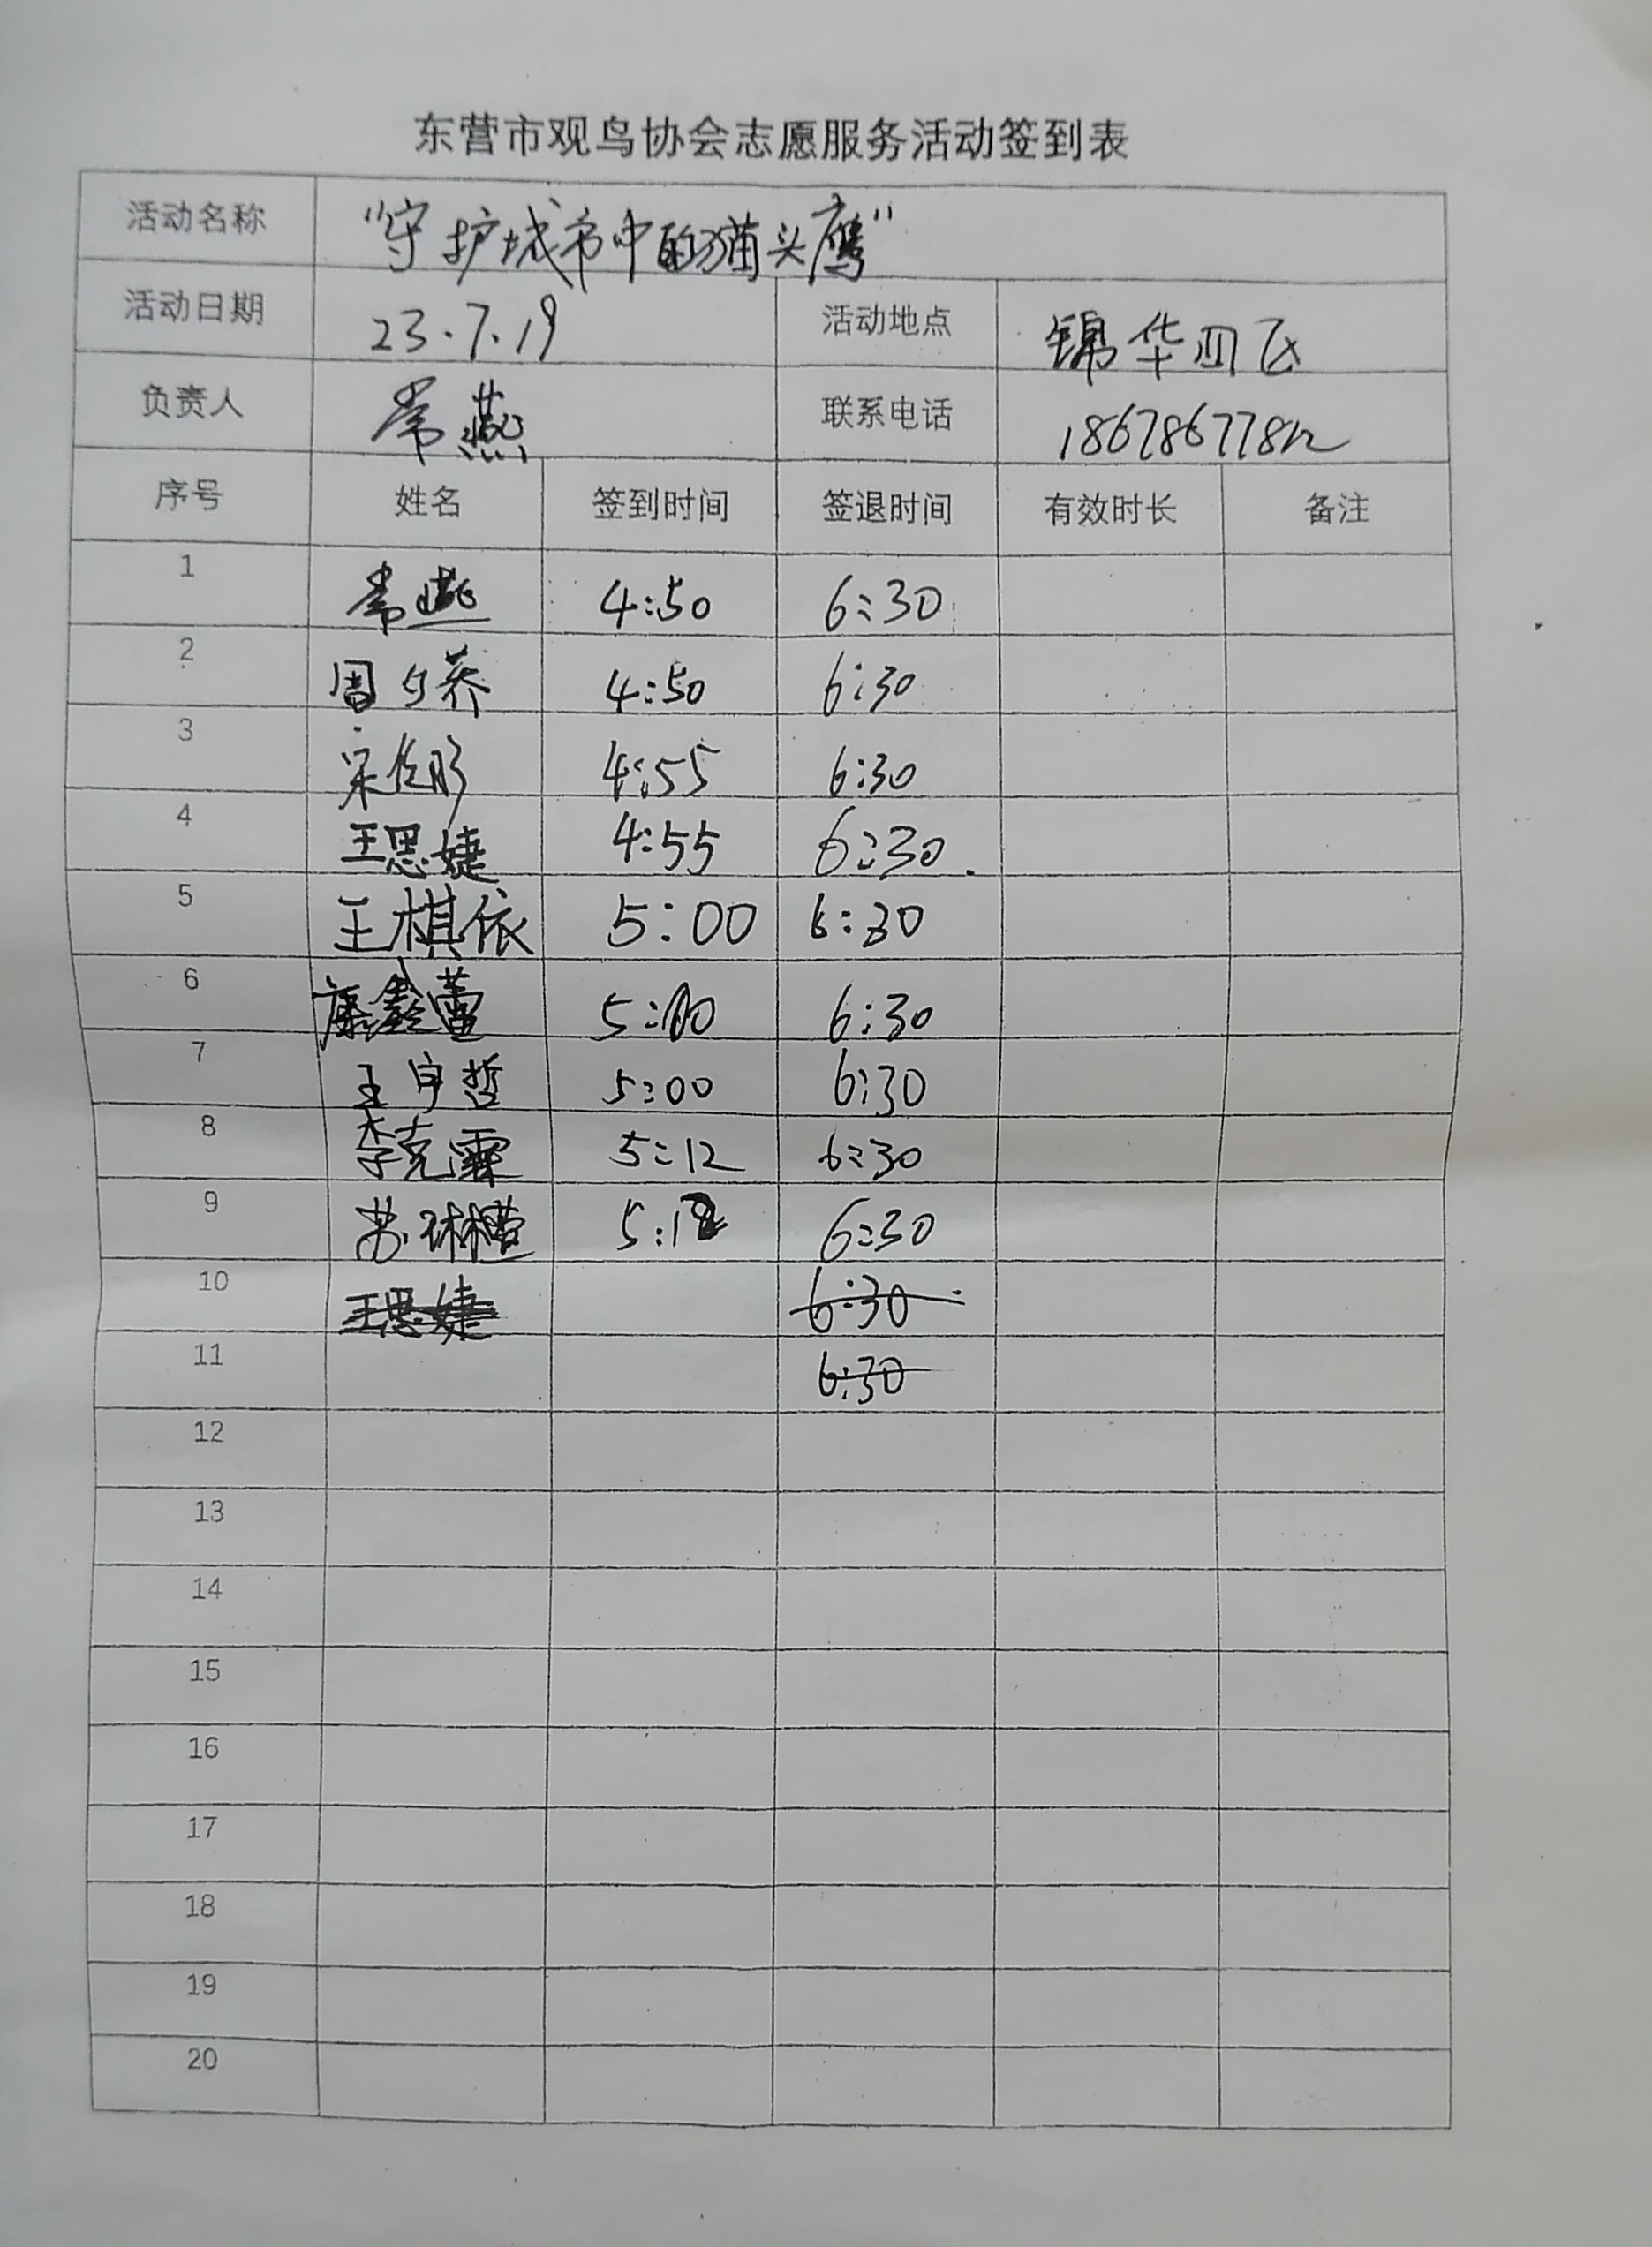 东营市观鸟协会志愿服务活动签到表
活动名称 “守护城市中的猫头鹰”
活动日期 23.7.19 活动地点 锦华四区
负责人 常燕 联系电话 186786778
序号 姓名 签到时间 签退时间 有效时长 备注
1 常燕 4:50 6:30
2 周 4:50 6:30
3 宋佐彤 4:55 6:30
4 王思婕 4:55 6:30
5 王棋依 5:00 6:30
6 康鑫蕾 5:00 6:30
7 王宇哲 5:00 6:30
8 李克霖 5:12 6:30
9 苏琳 5:12 6:30
10 王思婕 6:30
11 6:30
12
13
14
15
16
17
18
19
20